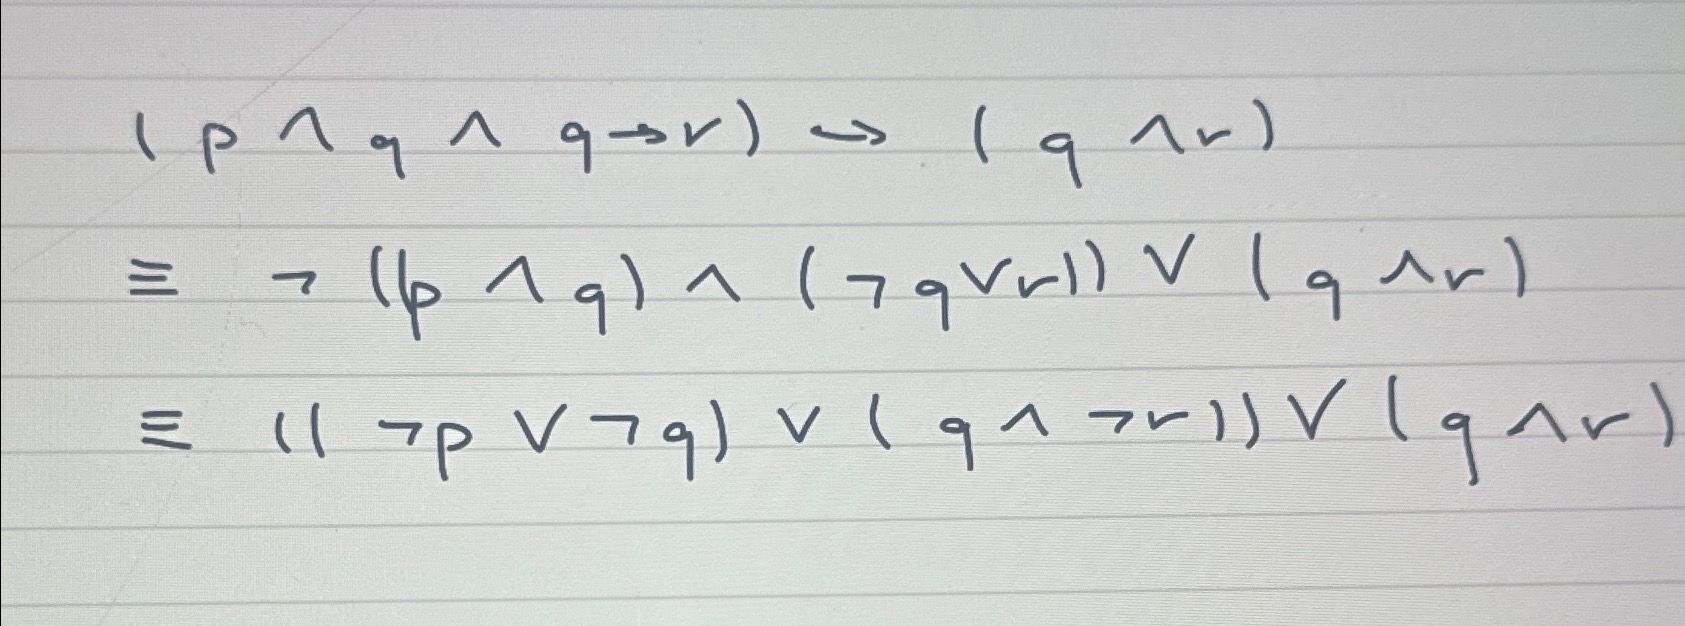 (p ∧ q ∧ q → r) → (q ∧ r)
≡ ¬((p ∧ q) ∧ (¬q ∨ r)) ∨ (q ∧ r)
≡ ((¬p ∨ ¬q) ∨ (q ∧ ¬r)) ∨ (q ∧ r)